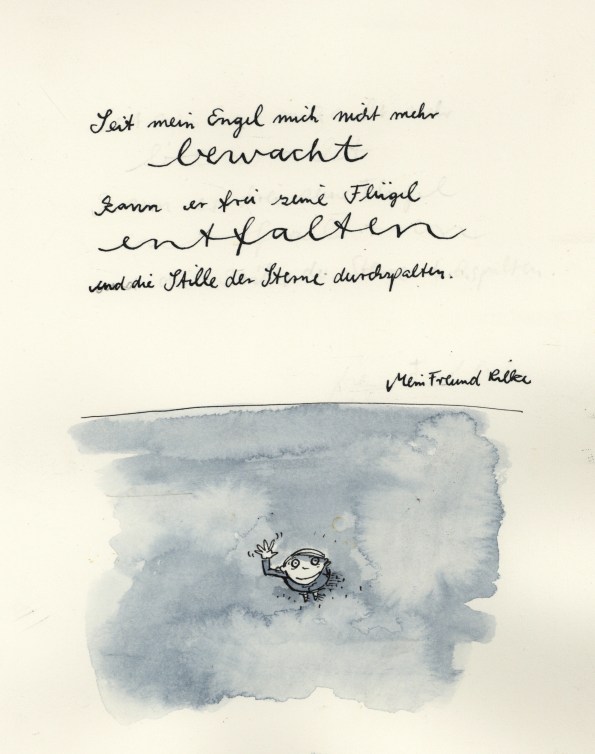 Seit mein Engel mich nicht mehr
bewacht
kann er frei seine Flügel
entfalten
und die Stille der Sterne durchspalten.
Mein Freund Rilke